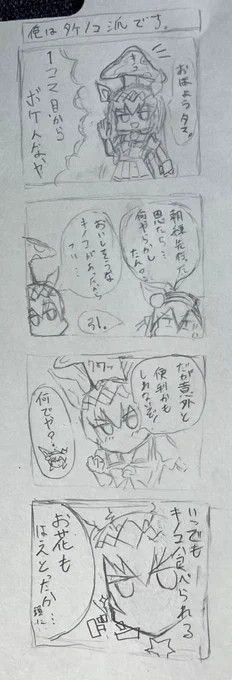 俺はタケノコ派です。
キノコ
おはようタマ。
1コマ目から
ボケんなや
朝練先行った
思たら…
何やらかし
たん?
おいしそうな
キノコがあったから
つい…
引。
だが意外と
便利かも
しれないぞ!
クワッ
何でや?
いつでも
キノコ食べられる
お花も
はえとったか…
頭に